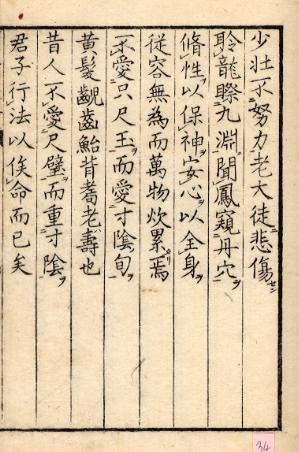 少壯不努力老大徒悲傷セン
聆龍睽九淵聞鳳窺丹穴ヲ
脩性以保神ヲ安心以全身ヲ
従容無為而萬物炊累焉
不愛只尺玉ヲ而愛寸陰旬ヲ
黄髪齯齒鮐背耈老壽也
昔人不愛尺璧而重寸陰ヲ
君子行法以俟命而已矣
34